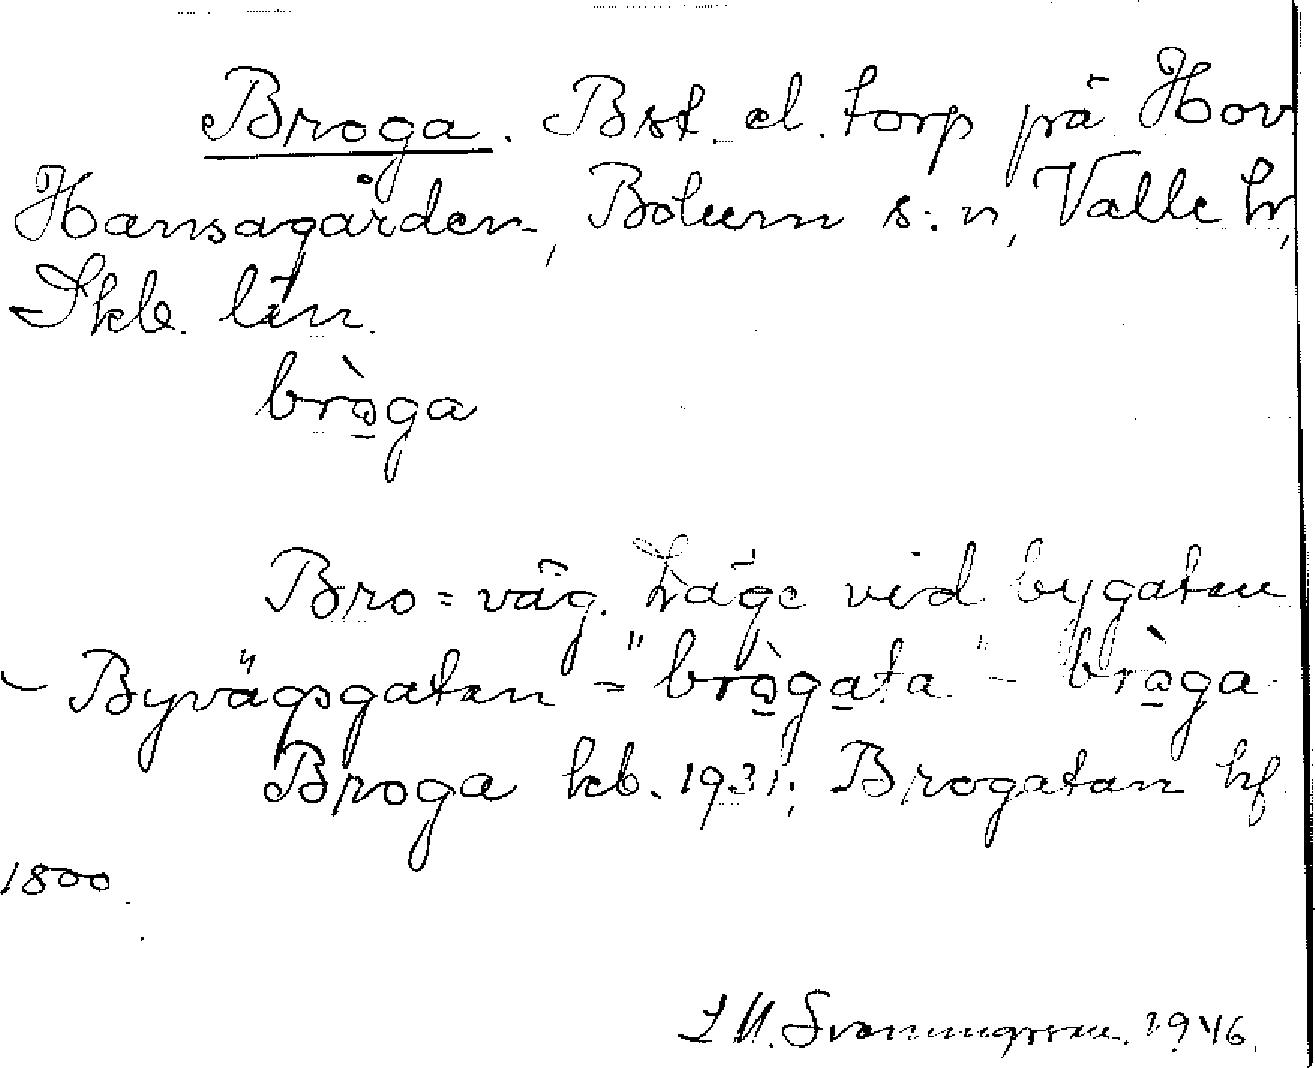 Broga. Bst. el. torp på Hov
Hansagården, Bolum s:n, Valle hd,
Skb. län.
bròga
Bro = väg. Läge vid bygatan
- Byvägsgatan = "brògata" - bròga
Broga kb. 1931; Brogatan hf
1800.
Svenningsson. 1946.